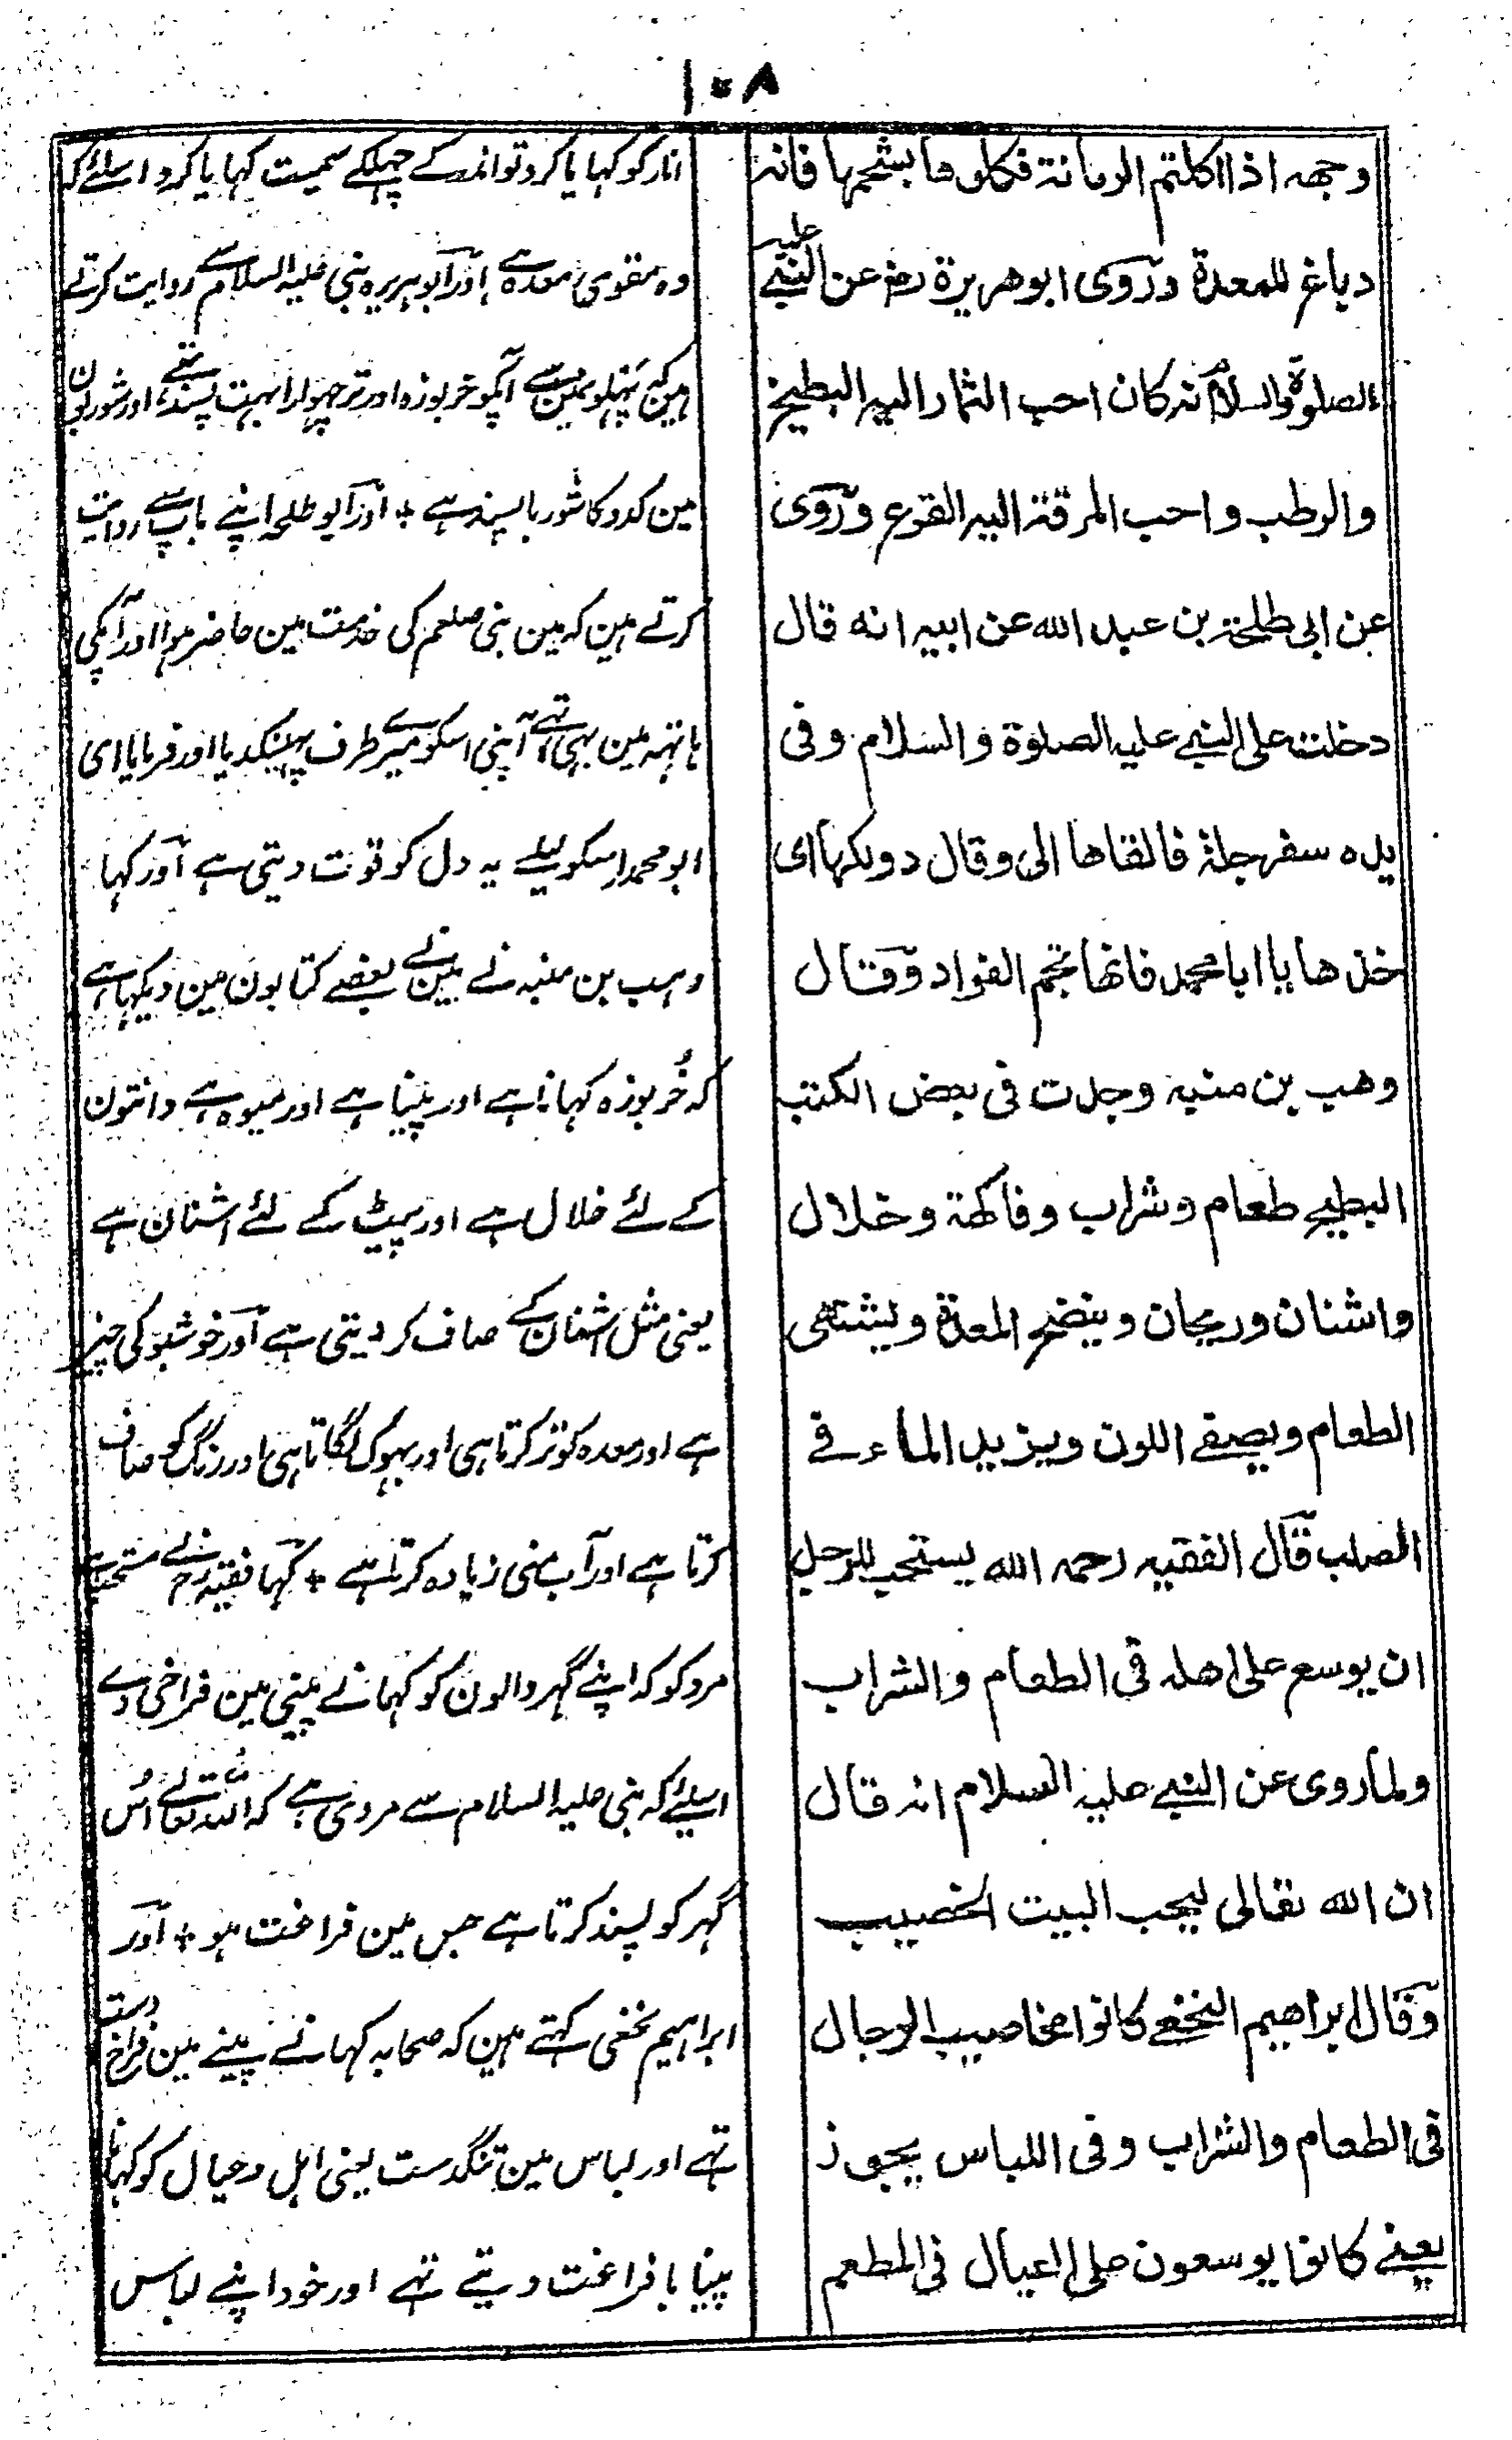 ١٠٨
وجهه اذا اكلتم الرمانة فكلوها بشحمها فانه
دباغ للمعدة وروى ابو هريرة رض عن النبي عليه
الصلوة والسلام انه كان احب الثمار اليه البطيخ
والرطب واحب المرقة اليه القرع وروى
عن ابى طلحة بن عبد الله عن ابيه انه قال
دخلت على النبي عليه الصلوة والسلام وفى
يده سفرجلة فالقاها الى وقال دونكها اى
خذها يا ابا محمد فانها تجم الفواد وقال
وهب بن منبه وجدت فى بعض الكتب
البطيخ طعام وشراب وفاكهة وخلال
واشنان وريحان وينضح المعدة ويشتهى
الطعام ويصفى اللون ويزيد الماء فى
الصلب قال الفقيه رحمه الله يستحب للرجل
ان يوسع على اهله فى الطعام والشراب
ولما روى عن النبي عليه السلام انه قال
ان الله تعالى ليحب البيت الخصيب
وقال ابراهيم النخعى كانوا مخاصيب الرجال
فى الطعام والشراب وفى اللباس يجوز
يعنى كانوا يوسعون على العيال فى المطعم
انار کو کہایا کرو تو اندر کے چہلکے سمیت کہایا کرو اسلئے کہ
وہ مقوی معدہ ہے اور ابو ہریرہ نبی علیہ السلام سے روایت کرتے
ہین کہ پہلو نمین سے آپکو خربوزہ اور تر چہوارا بہت پسند تہے اور شوربون
مین کدو کا شوربا پسند ہے + اور ابو طلحہ اپنے باپ سے روایت
کرتے ہین کہ مین نبی صلعم کی خدمت مین حاضر ہوا اور آپکی
ہاتہہ مین بہی تہی آپنی اسکو میرے طرف پہینکدیا اور فرمایا ای
ابو محمد اسکو لیلے یہ دل کو قوت دیتی ہے اور کہا
وہب بن منبہ نے مینے بعضے کتابون مین دیکہا ہے
کہ خربوزہ کہانا ہے اور پینا ہے اور میوہ ہے دانتون
کے لئے خلال ہے اور پیٹ کے لئے اشنان ہے
یعنی مثل اشنان کے صاف کر دیتی ہے اور خوشبو کی چیز
ہے اور معدہ کو تر کرتا ہی اور بہوک لگاتا ہی اور رنگ کو صاف
کرتا ہے اور آب منی زیادہ کرتا ہے + کہا فقیہ رح نے مستحب ہے
مرد کو کہ اپنے گہر والون کو کہانے پینی مین فراخی دے
اسلیے کہ نبی علیہ السلام سے مروی ہے کہ اللہ تعالے اُس
گہر کو پسند کرتا ہے جس مین فراغت ہو + اور
ابراہیم نخعی کہتے ہین کہ صحابہ کہانے پینے مین فراخ دست
تہے اور لباس مین تنگدست یعنی اہل و عیال کو کہانا
پینا با فراغت دیتے تہے اور خود اپنے لباس